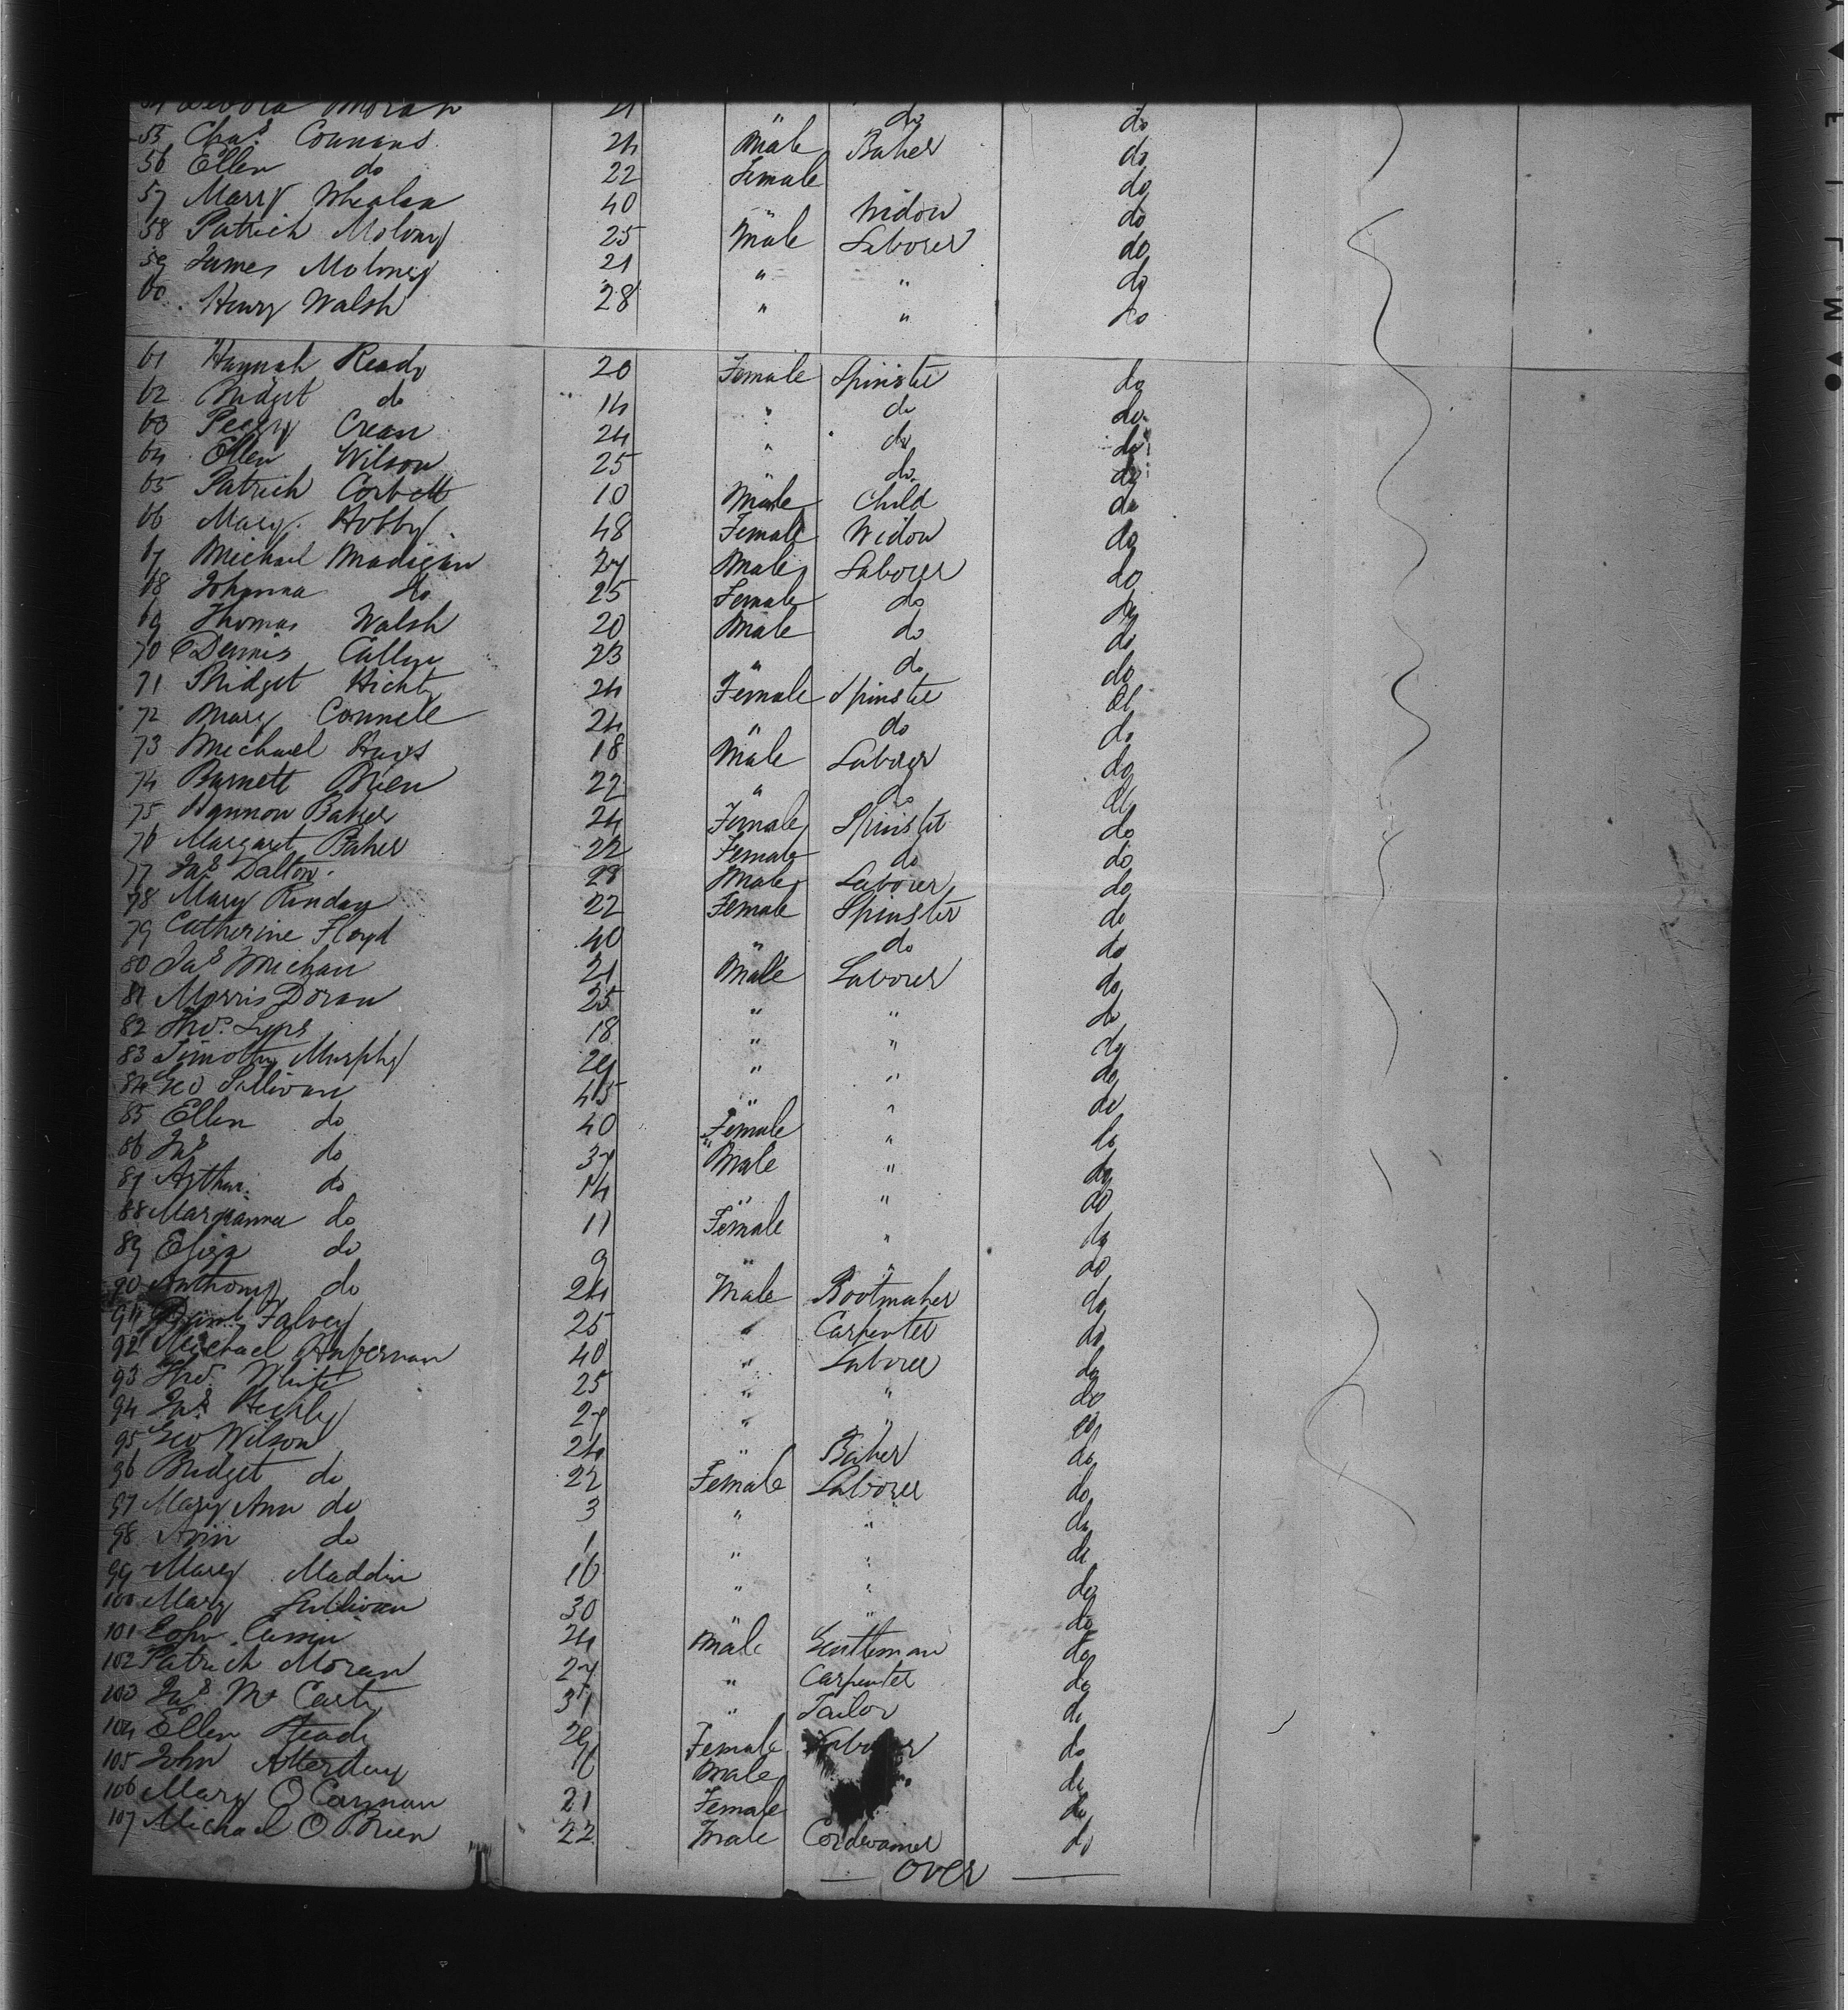 54 Debora Moran 21 " do do
55 Chas. Counans 24 Male Baker do
56 Ellen do 22 Female do
57 Marry Whealan 40 " Widow do
58 Patrick Molony 25 Male Laborer do
59 James Molony 21 " " do
60 Henry Walsh 28 " " do
61 Hannah Reado 20 Female Spinster do
62 Bridget do 14 " do do
63 Peggy Crean 24 " do do
64 Ellen Wilson 25 " do do
65 Patrick Corbett 10 Male Child do
66 Mary Hobby 48 Female Widow do
67 Michael Madigan 27 Male Laborer do
68 Johanna do 25 Female do do
69 Thomas Walsh 20 Male do do
70 Dennis 23 " do do
71 Bridget 24 Female Spinster do
72 Mary Connell 24 " do do
73 Michael Hays 18 Male Laborer do
74 Barnett Brien 22 " do do
75 Hannon Baker 24 Female Spinster do
76 Margaret Baker 22 Female do do
77 Jas. Dalton 28 Male Laborer do
78 Mary 22 Female Spinster do
79 Catherine Floyd 40 " do do
80 Jas. Michan 21 Male Laborer do
81 Morris Doran 25 " " do
82 Tho. 18 " " do
83 Timothy Murphy 29 " " do
84 Geo Sullivan 45 " " do
85 Ellen do 40 Female " do
86 Jas do 37 " Male " do
87 Arthur do 14 " " do
88 Maryanna do 11 Female " do
89 Eliza do 9 " " do
90 Anthony do 24 Male Bootmaker do
91 Falvey 25 " Carpenter do
92 Michael 40 " Laborer do
93 Tho. White 25 " " do
94 Jas. 27 " " do
95 Geo Wilson 24 " Baker do
96 Bridget do 22 Female Laborer do
97 Mary Ann do 3 " " do
98 Ann do 1 " " do
99 Mary Maddin 16 " " do
100 Mary Sullivan 30 " " do
101 24 Male Gentleman do
102 Patrick Moran 27 " Carpenter do
103 Jas. Mc Carty 31 " Tailor do
104 Ellen 29 Female Laborer do
105 John Male do
106 Mary O Cannan 21 Female do
107 Michael O Brien 22 Male Cordwainer do
— over —